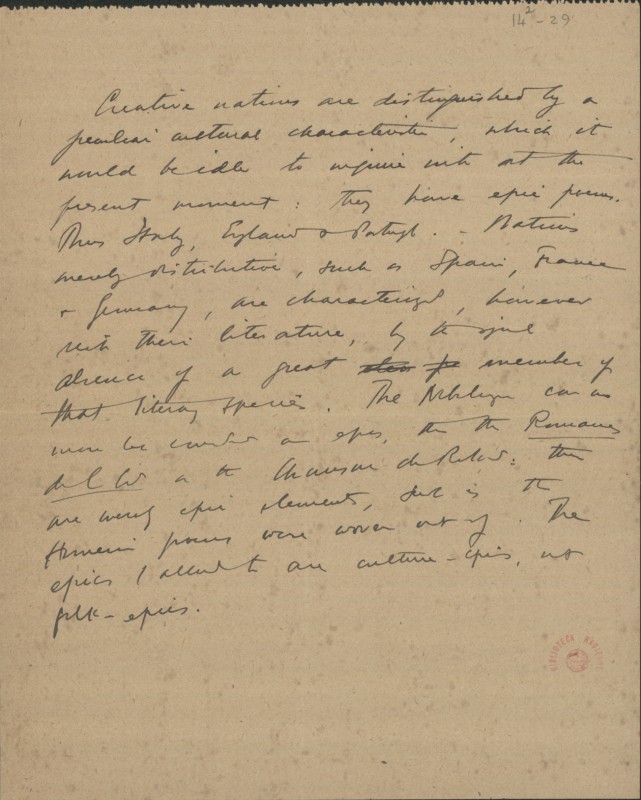 14² - 29
Creative nations are distinguished by a
peculiar cultural characteristic, which it
would be idle to inquire into at the
present moment: they have epic poems.
Thus Italy, England & Portugal. - Nations
merely distributive, such as Spain, France
& Germany, are characterized, however
rich their literature, by the signal
absence of a great member of
that literary species. The Nibelungen can no
more be considered an epic, than the Romancero
del Cid or the Chanson de Roland: these
are merely epic elements, such as the
Homeric poems were woven out of. The
epics I allude to are culture-epics, not
folk-epics.
BIBLIOTECA NACIONAL